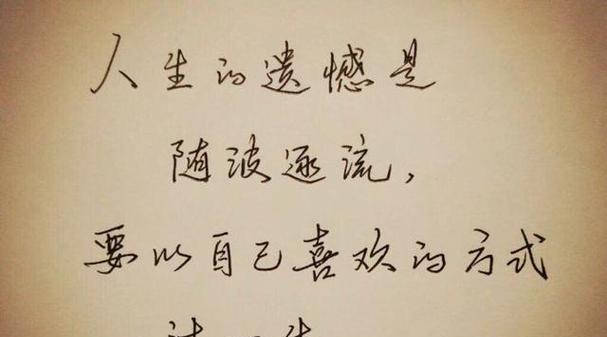 人生的遗憾是
随波逐流，
要以自己喜欢的方式